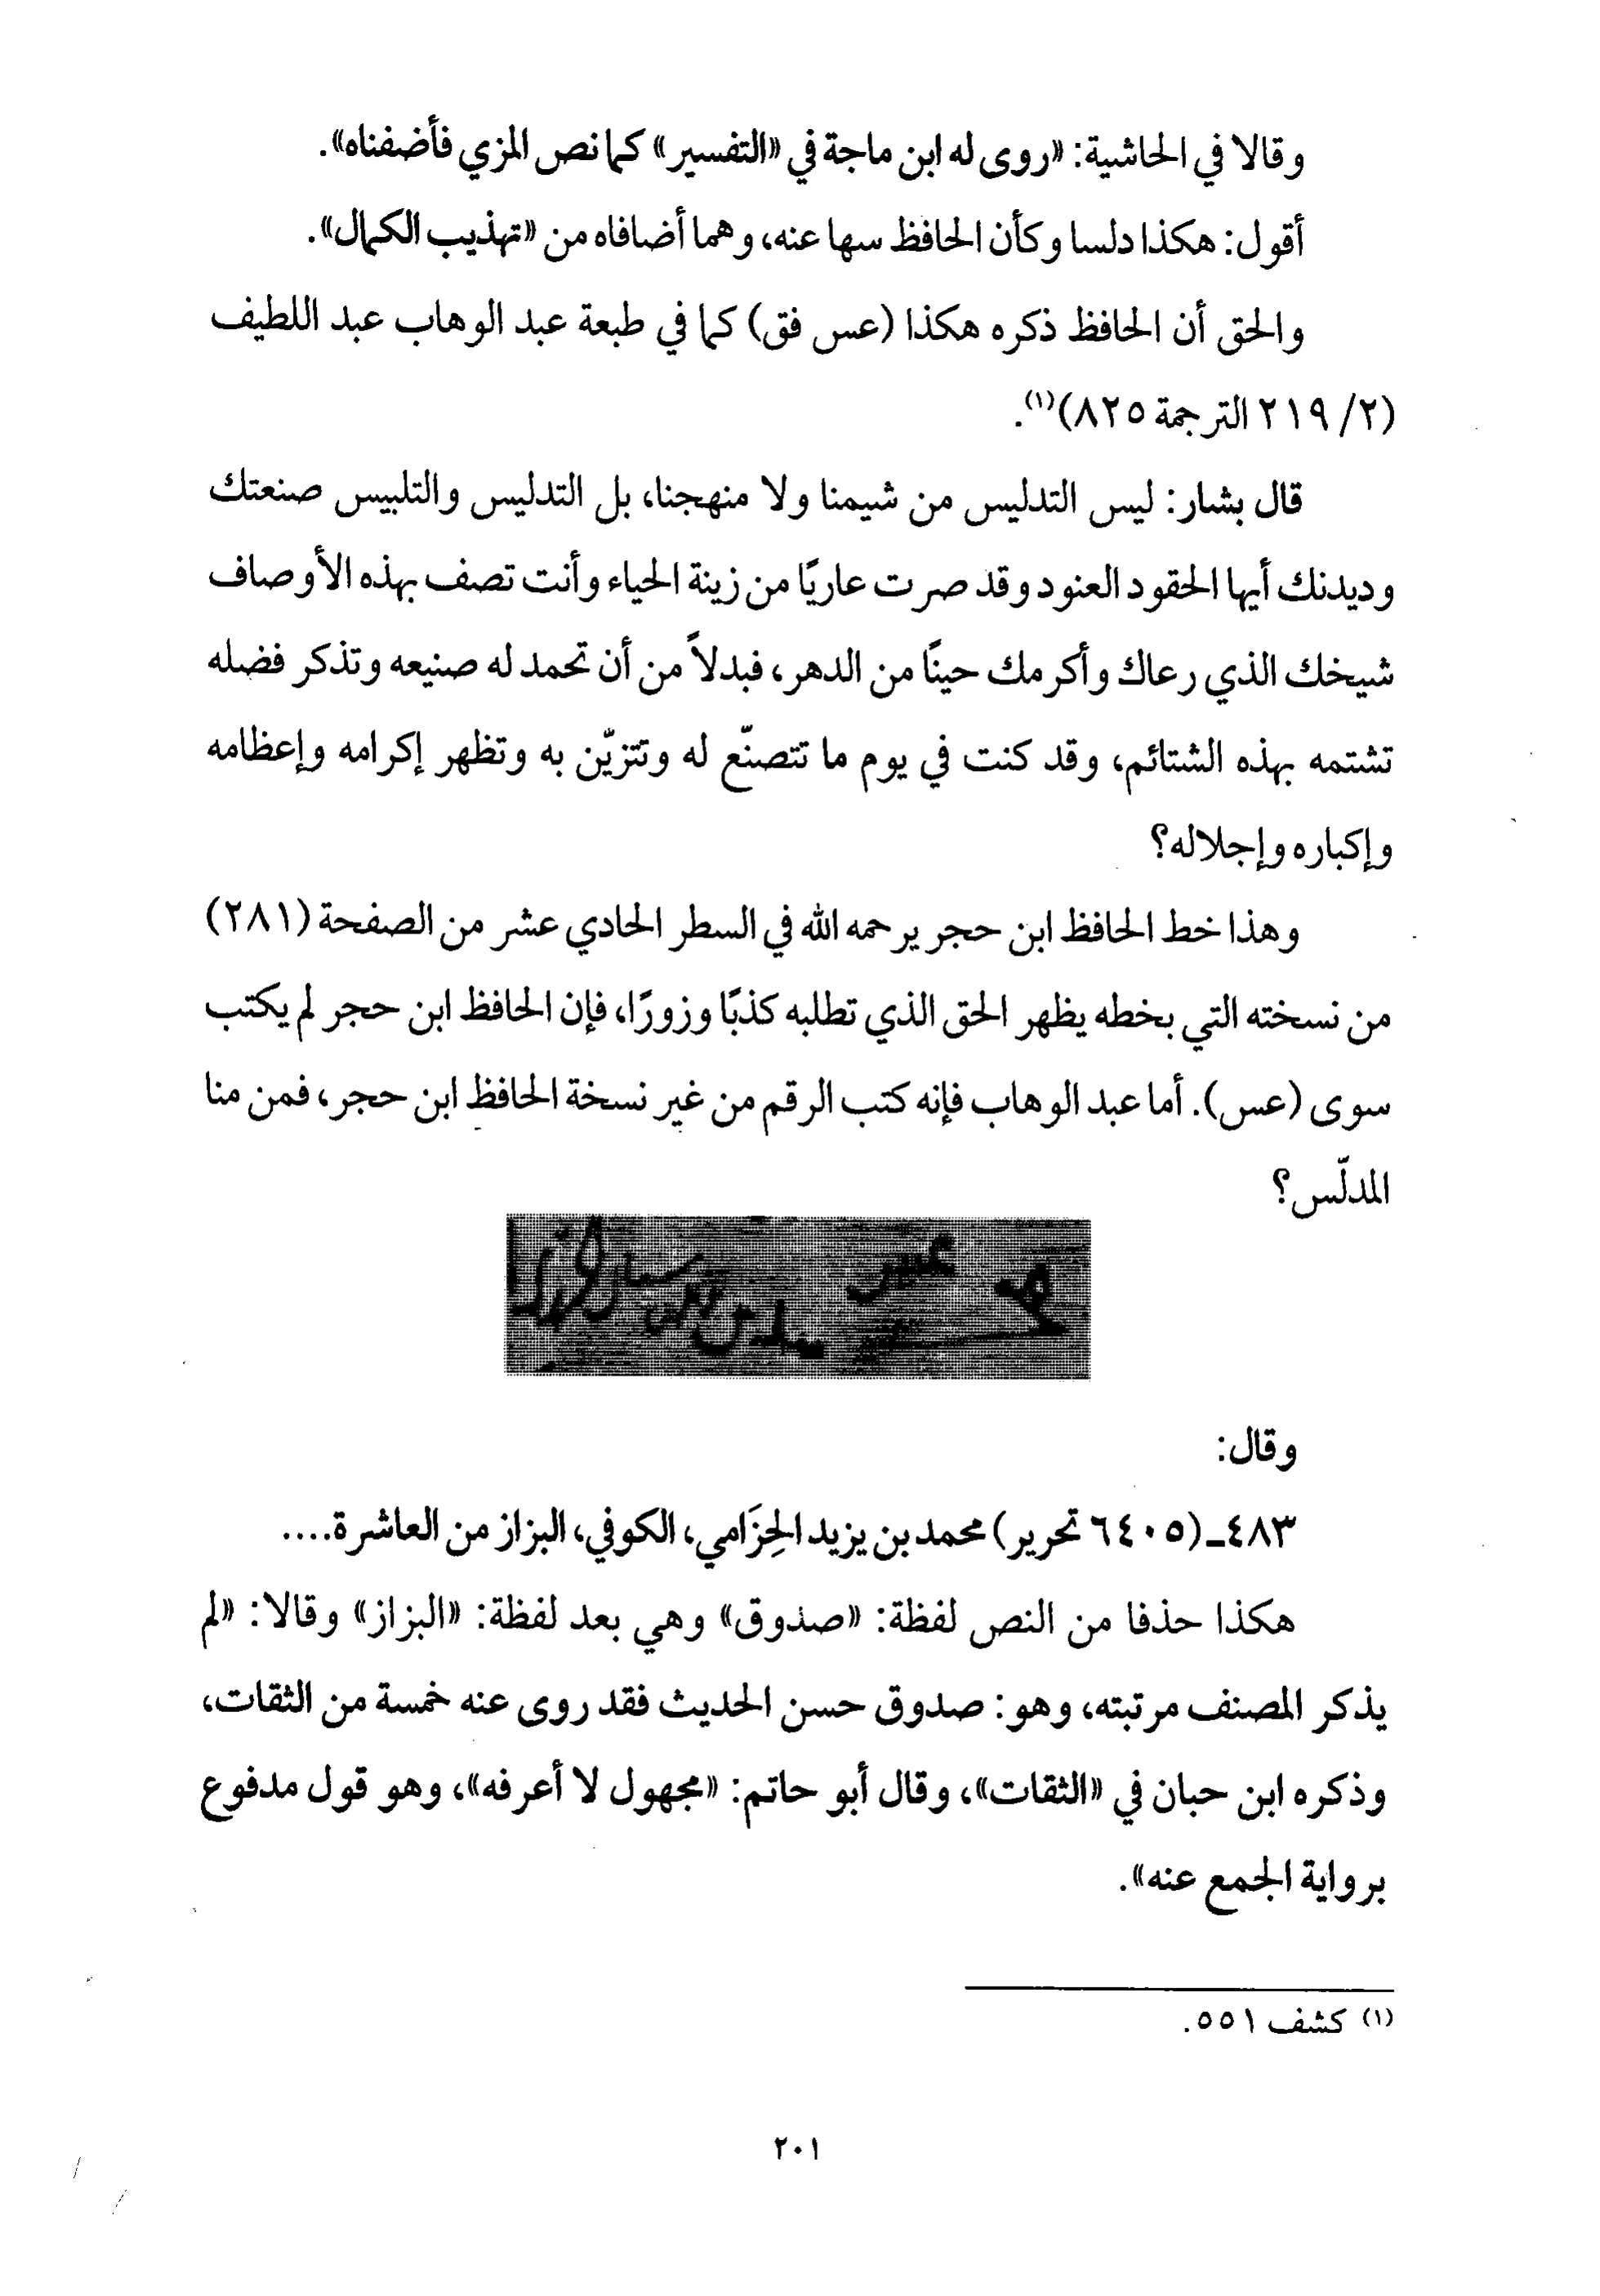 وقالا في الحاشية: «روى له ابن ماجة في «التفسير» كما نص المزي فأضفناه».
أقول: هكذا دلسا وكأن الحافظ سها عنه، وهما أضافاه من «تهذيب الكمال».
والحق أن الحافظ ذكره هكذا (عس فق) كما في طبعة عبد الوهاب عبد اللطيف
(٢/ ٢١٩ الترجمة ٨٢٥)(١).
قال بشار: ليس التدليس من شيمنا ولا منهجنا، بل التدليس والتلبيس صنعتك
وديدنك أيها الحقود العنود وقد صرت عاريًا من زينة الحياء وأنت تصف بهذه الأوصاف
شيخك الذي رعاك وأكرمك حينًا من الدهر، فبدلاً من أن تحمد له صنيعه وتذكر فضله
تشتمه بهذه الشتائم، وقد كنت في يوم ما تتصنّع له وتتزيّن به وتظهر إكرامه وإعظامه
وإكباره وإجلاله؟
وهذا خط الحافظ ابن حجر يرحمه الله في السطر الحادي عشر من الصفحة (٢٨١)
من نسخته التي بخطه يظهر الحق الذي تطلبه كذبًا وزورًا، فإن الحافظ ابن حجر لم يكتب
سوى (عس). أما عبد الوهاب فإنه كتب الرقم من غير نسخة الحافظ ابن حجر، فمن منا
المدلّس؟
عس
وقال:
٤٨٣ـ (٦٤٠٥ تحرير) محمد بن يزيد الحِزَامي، الكوفي، البزاز من العاشرة....
هكذا حذفا من النص لفظة: «صدوق» وهي بعد لفظة: «البزاز» وقالا: «لم
يذكر المصنف مرتبته، وهو: صدوق حسن الحديث فقد روى عنه خمسة من الثقات،
وذكره ابن حبان في «الثقات»، وقال أبو حاتم: «مجهول لا أعرفه»، وهو قول مدفوع
برواية الجمع عنه».
(١) كشف ٥٥١.
٢٠١